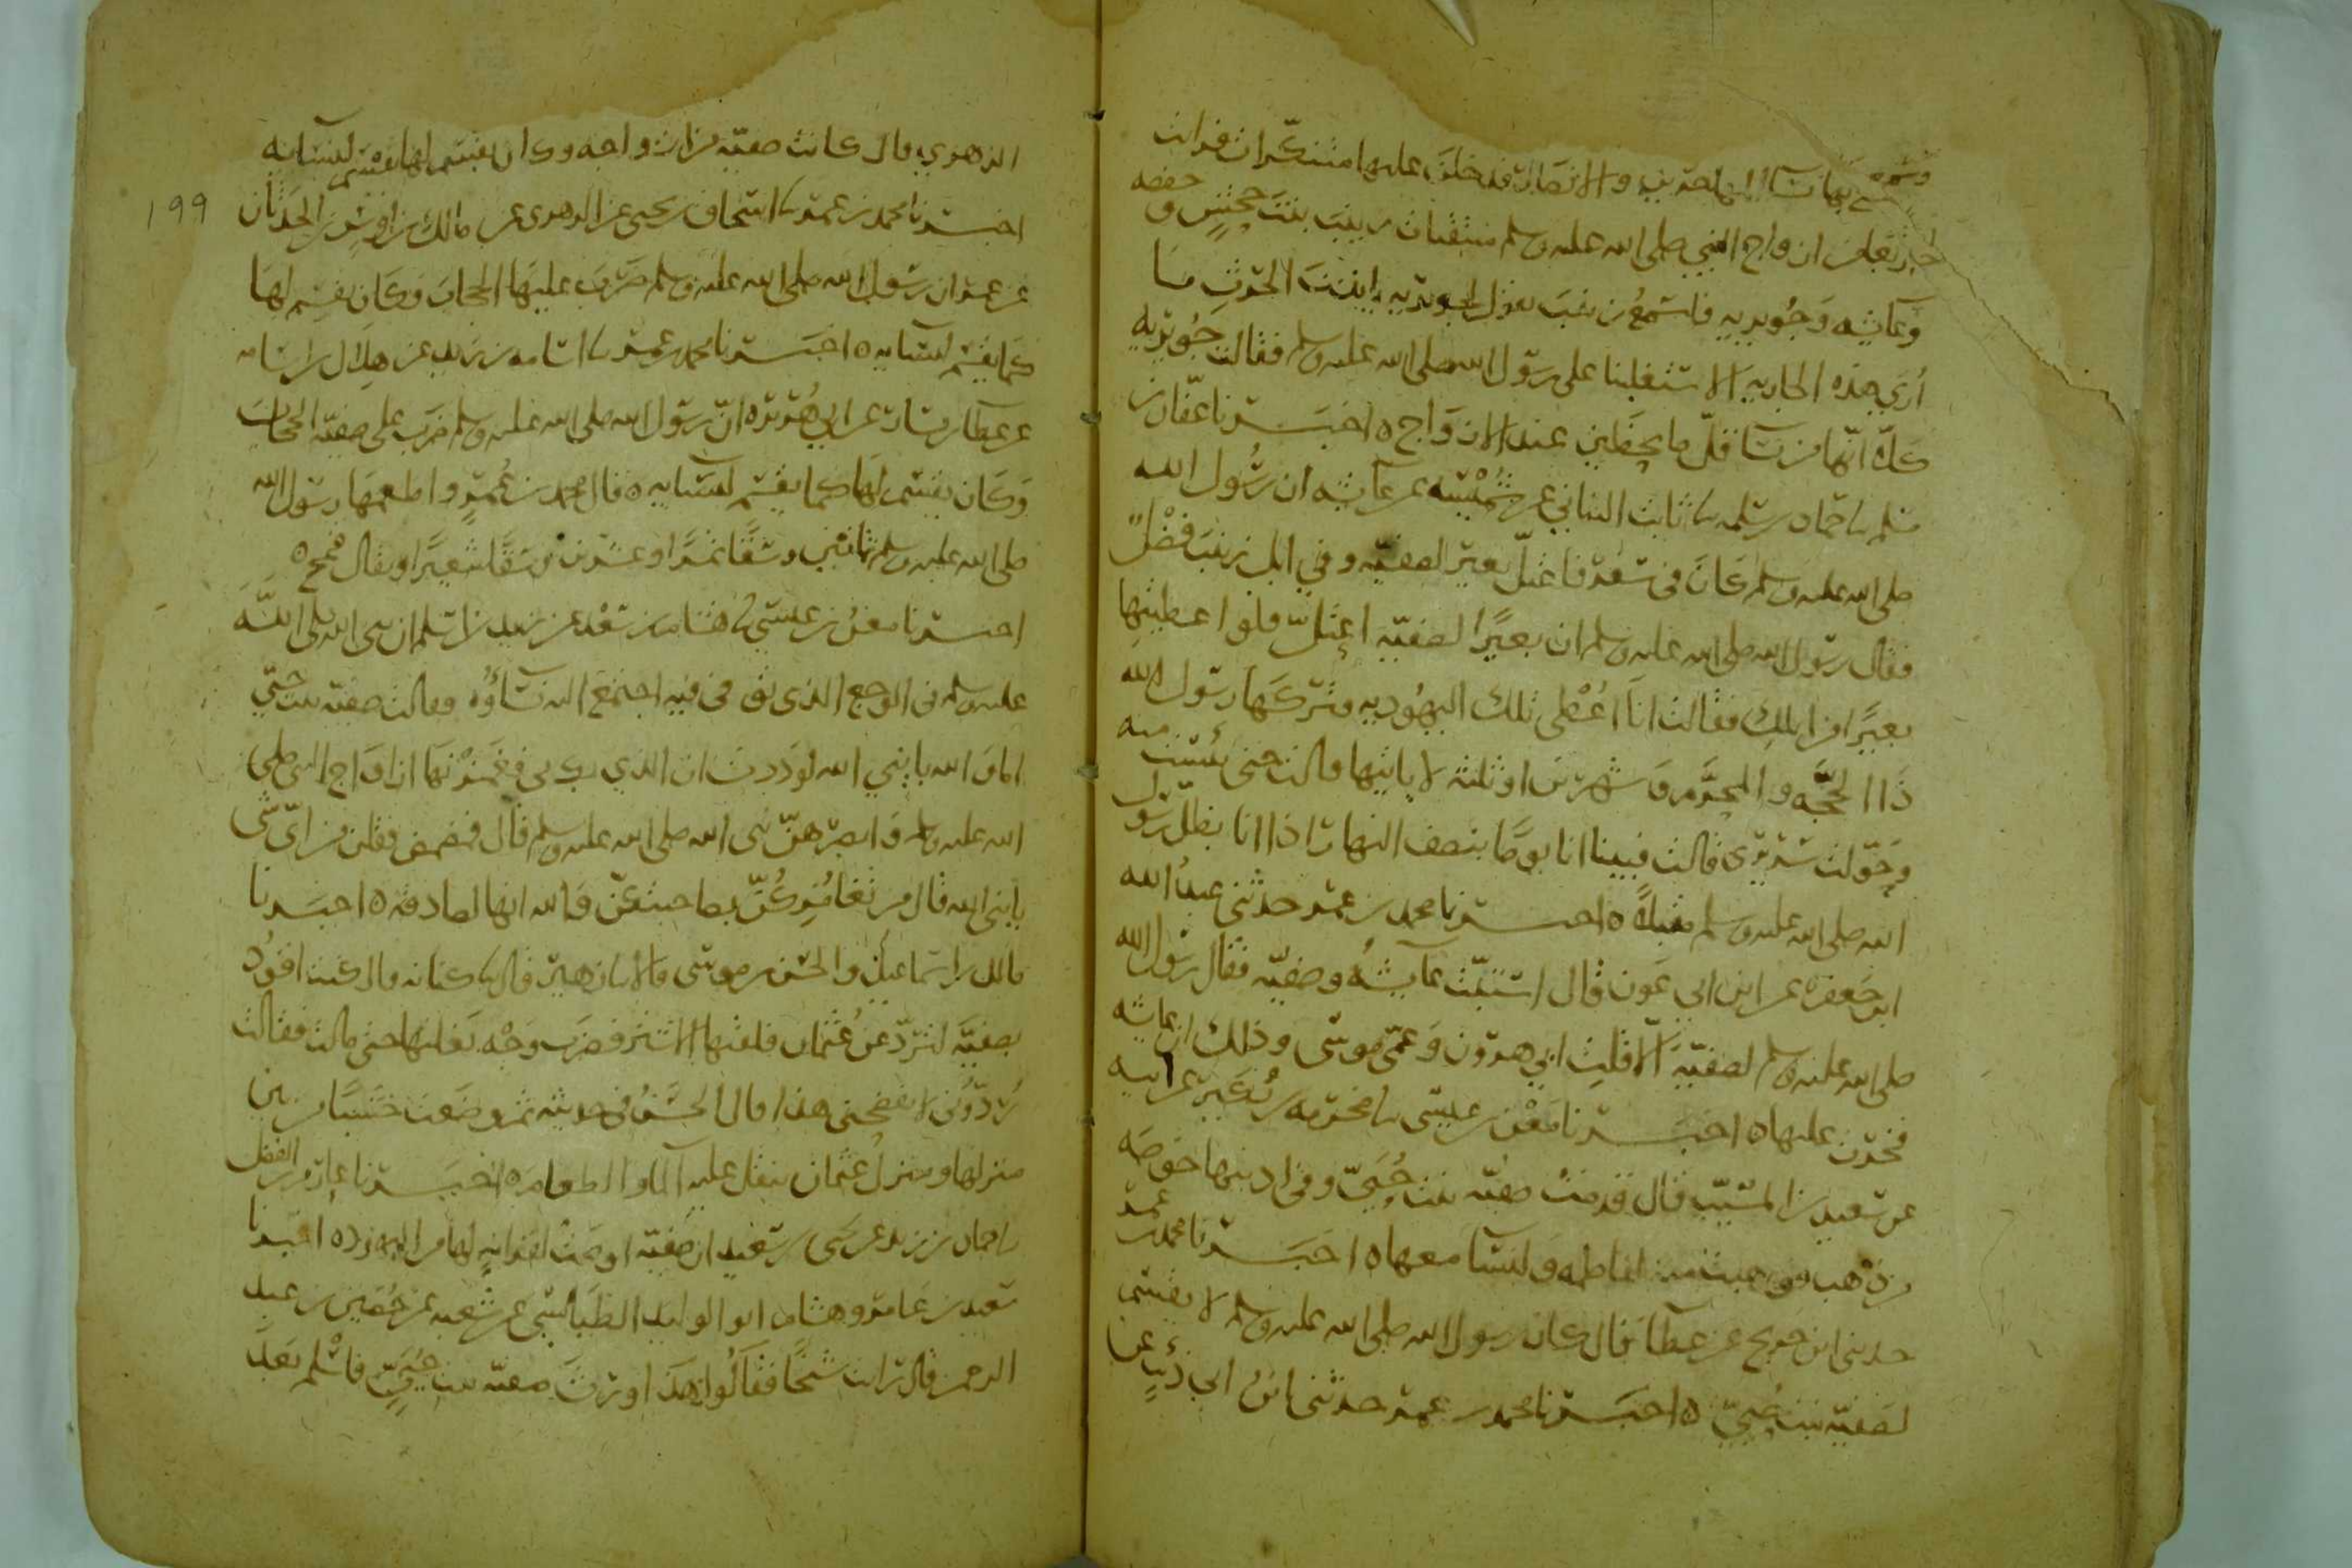 وسمع بها نسا المهاجرين والانصار فدخلن عليها متنكرات فرات
اربعا من ازواج النبي صلى الله عليه وسلم منتقبات زينب بنت جحش و حفصه
وعايشه وجويريه فاسمع زينب تقول لجويريه يابنت الحرث ما
أرى هذه الجاريه الا ستغلبنا على رسول الله صلى الله عليه وسلم فقالت جويريه
كلا انها من نسا قل ما يحظين عند الازواج ه اخبرنا عفان بن
مسلم نا حماد بن سلمه نا ثابت البناني عن شميسه عن عايشه ان رسول الله
صلى الله عليه وسلم كان في سفر فاعتل بعير لصفيه وفي ابل زينب فضل
فقال رسول الله صلى الله عليه وسلم ان بعيرا لصفيه اعتل فلو اعطيتها
بعيرا من ابلك فقالت انا اعطي تلك اليهوديه فتركها رسول الله
ذا الحجه والمحرم شهرين او ثلثه لا ياتيها قالت حتى يئست منه
وحولت سريري قالت فبينا انا يوما بنصف النهار اذا انا بظل رسول
الله صلى الله عليه وسلم مقبلا ه اخبرنا محمد بن عمر حدثني عبد الله
ابن جعفر عن ابن ابي عون قال استبت عايشه وصفيه فقال رسول الله
صلى الله عليه وسلم لصفيه الا قلت ابي هرون وعمي موسى وذلك ان عايشه
فخرت عليها ه اخبرنا معن بن عيسى نا مخرمه بن بكير عن ابيه
عن سعيد بن المسيب قال قدمت صفيه بنت حيي وفي اذنيها خوصه
من ذهب فوهبت منه لفاطمه ولنسا معها ه اخبرنا محمد بن عمر
حدثني ابن جريج عن عطا قال كان رسول الله صلى الله عليه وسلم لا يقسم
لصفيه بنت حيي ه اخبرنا محمد بن عمر حدثني ابن ابي ذئب عن
الزهري قال كانت صفيه من ازواجه وكان يقسم لها كما يقسم لنسايه
اخبرنا محمد بن عمر نا اسحاق بن يحيى عن الزهري عن مالك بن اوس بن الحدثان
عن عمر ان رسول الله صلى الله عليه وسلم ضرب عليها الحجاب وكان يقسم لها
كما يقسم لنسايه ه اخبرنا محمد بن عمر نا اسامه بن زيد عن هلال بن اسامه
عن عطا بن يسار عن ابي هريره ان رسول الله صلى الله عليه وسلم ضرب على صفيه الحجاب
وكان يقسم لها كما يقسم لنسايه ه قال محمد بن عمر واطعمها رسول الله
صلى الله عليه وسلم ثمانين وسقا تمرا وعشرين وسقا شعيرا ويقال قمح ه
اخبرنا معن بن عيسى نا هشام بن سعد عن زيد بن اسلم ان نبي الله صلى الله
عليه وسلم في الوجع الذي توفي فيه اجتمع اليه نساؤه فقالت صفيه بنت حيي
اما والله يا نبي الله لوددت ان الذي بك بي فغمزنها ازواج النبي صلى
الله عليه وسلم وابصرهن نبي الله صلى الله عليه وسلم قال مضمضن فقلن من اي شي
يا نبي الله قال من تغامزكن بصاحبتكن والله انها لصادقه ه اخبرنا
مالك بن اسماعيل والحسن بن موسى قالا نا زهير قال نا كنانه قال كنت اقود
بصفيه لترد عن عثمان فلقيها الاشتر فضرب وجه بغلتها حتى مالت فقالت
ردوني لا يفضحني هذا قال الحسن في حديثه ثم وضعت خشبا من بين
منزلها ومنزل عثمان ينقل عليه الما والطعام ه اخبرنا عارم بن الفضل
نا حماد بن زيد عن يحيى بن سعيد ان صفيه اوصت لقرابه لها من اليهود ه اخبرنا
سعيد بن عامر وهشام ابو الوليد الطيالسي عن شعبه عن حصين بن عبد
الرحمن قال رايت شيخا فقالوا هذا وارث صفيه بنت حيي فاسلم بعد
١٩٩